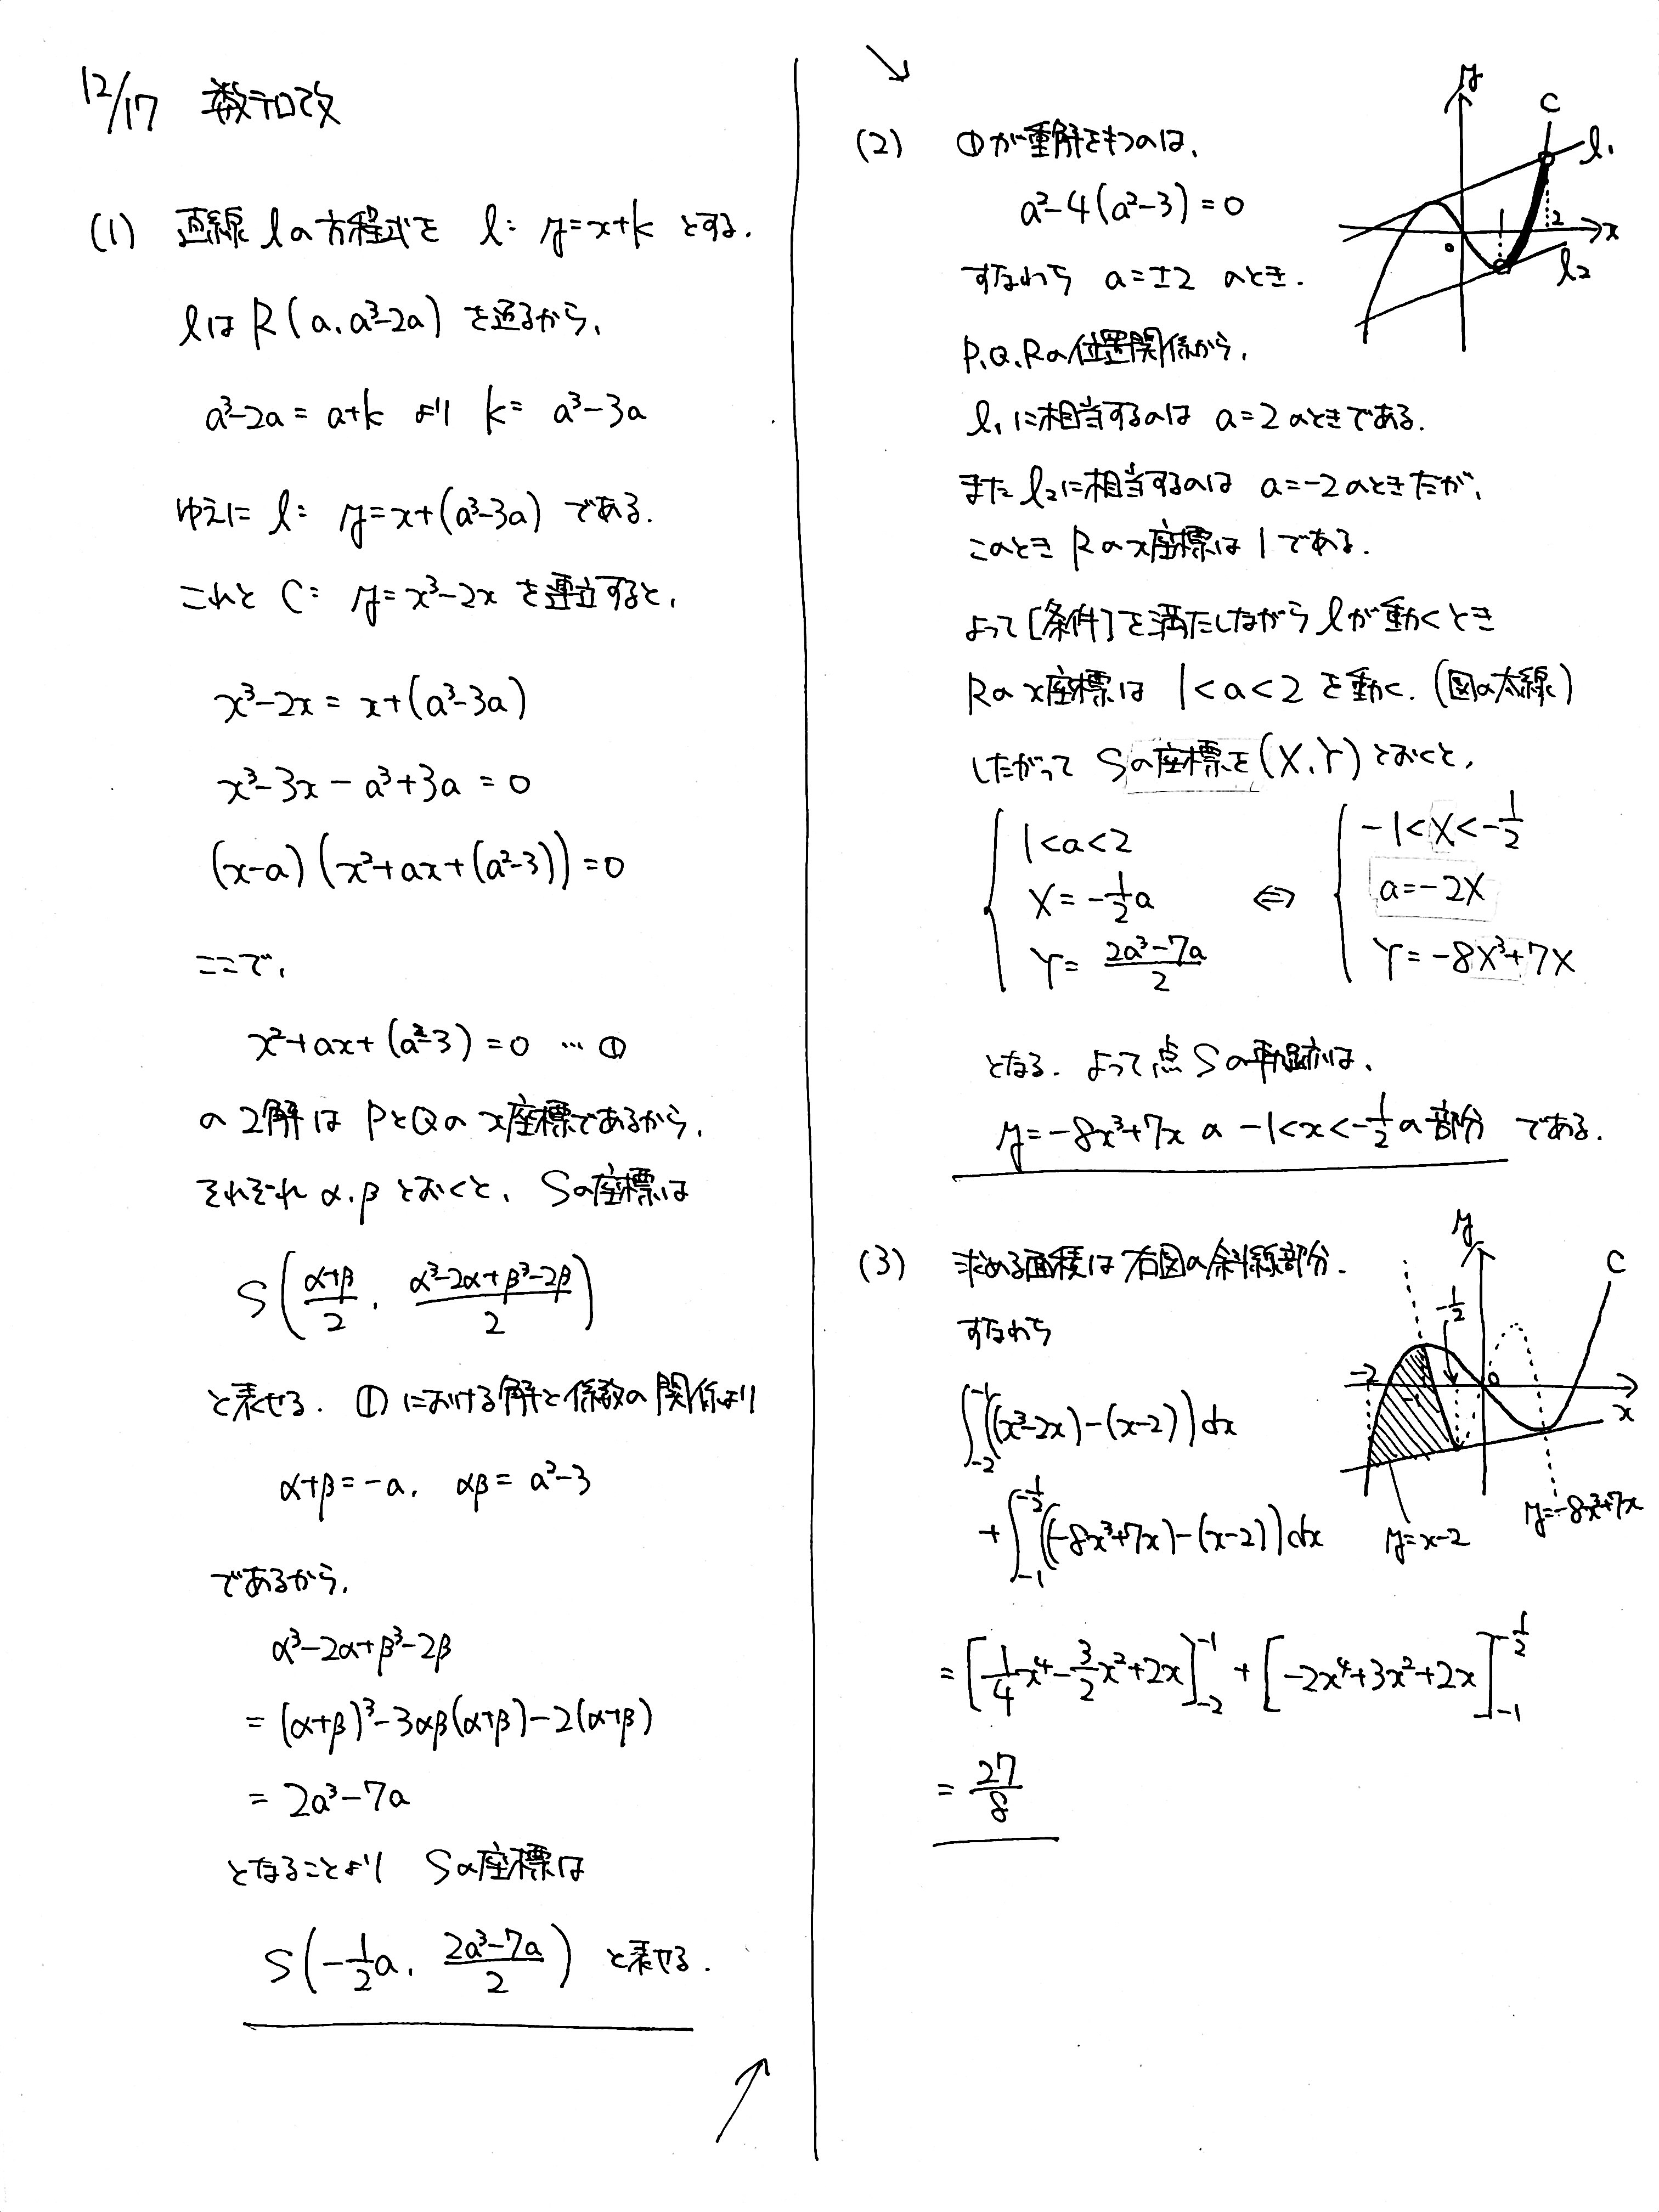 12/17 数テロ改
(1) 直線 l の方程式を l: y=x+k とする.
lは R(a, a³-2a) を通るから,
a³-2a = a+k より k= a³-3a
ゆえに l: y=x+(a³-3a) である.
これと C: y=x³-2x を連立すると,
x³-2x = x+(a³-3a)
x³-3x-a³+3a = 0
(x-a)(x²+ax+(a²-3))=0
ここで,
x²+ax+(a²-3)=0 … ①
の2解は PとQの x座標であるから,
それぞれ α, β とおくと, Sの座標は
S((α+β)/2, (α³-2α+β³-2β)/2)
と表せる. ①における解と係数の関係より
α+β=-a, αβ= a²-3
であるから,
α³-2α+β³-2β
= (α+β)³-3αβ(α+β)-2(α+β)
= 2a³-7a
となることより Sの座標は
S(-1/2 a, (2a³-7a)/2) と表せる.
↗
↘
(2) ①が重解をもつのは,
a²-4(a²-3)=0
すなわち a=±2 のとき.
P, Q, Rの位置関係から,
l₁に相当するのは a=2のときである.
また l₂に相当するのは a=-2のときだが,
このとき Rのx座標は 1である.
よって[条件]を満たしながら lが動くとき
Rのx座標は 1<a<2 を動く. (図の太線)
したがって Sの座標を(X, Y)とおくと,
{ 1<a<2
X=-1/2 a
Y= (2a³-7a)/2
⇔
{ -1<X<-1/2
a=-2X
Y=-8X³+7X
となる. よって点Sの軌跡は,
y=-8x³+7x の -1<x<-1/2の部分 である.
y
C
l₁
1
2
x
0
l₂
(3) 求める面積は右図の斜線部分.
すなわち
∫_{-2}^{-1}((x³-2x)-(x-2))dx
+∫_{-1}^{-1/2}((-8x³+7x)-(x-2))dx
= [1/4 x⁴-3/2 x²+2x]_{-2}^{-1} + [-2x⁴+3x²+2x]_{-1}^{-1/2}
= 27/8
y
C
-1/2
-2
-1
0
x
y=x-2
y=-8x³+7x